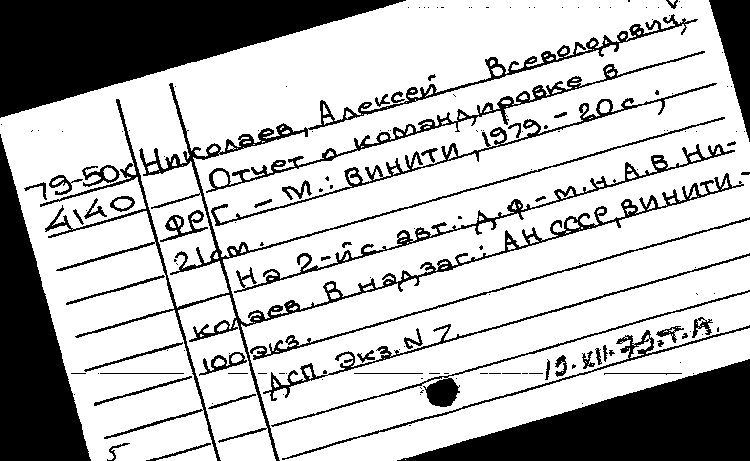 Николаев, Алексей Всеволодович,
79-50к Отчет о командировке в
4140 ФРГ. - М.: ВИНИТИ, 1979. - 20 с;
21 см.
На 2-й с. авт.: д.ф.-м.н. А.В. Ни-
колаев. В надзаг.: АН СССР, ВИНИТИ. -
100 экз.
ДСП. Экз. N 7.
19.XII.79.Т.А.
5